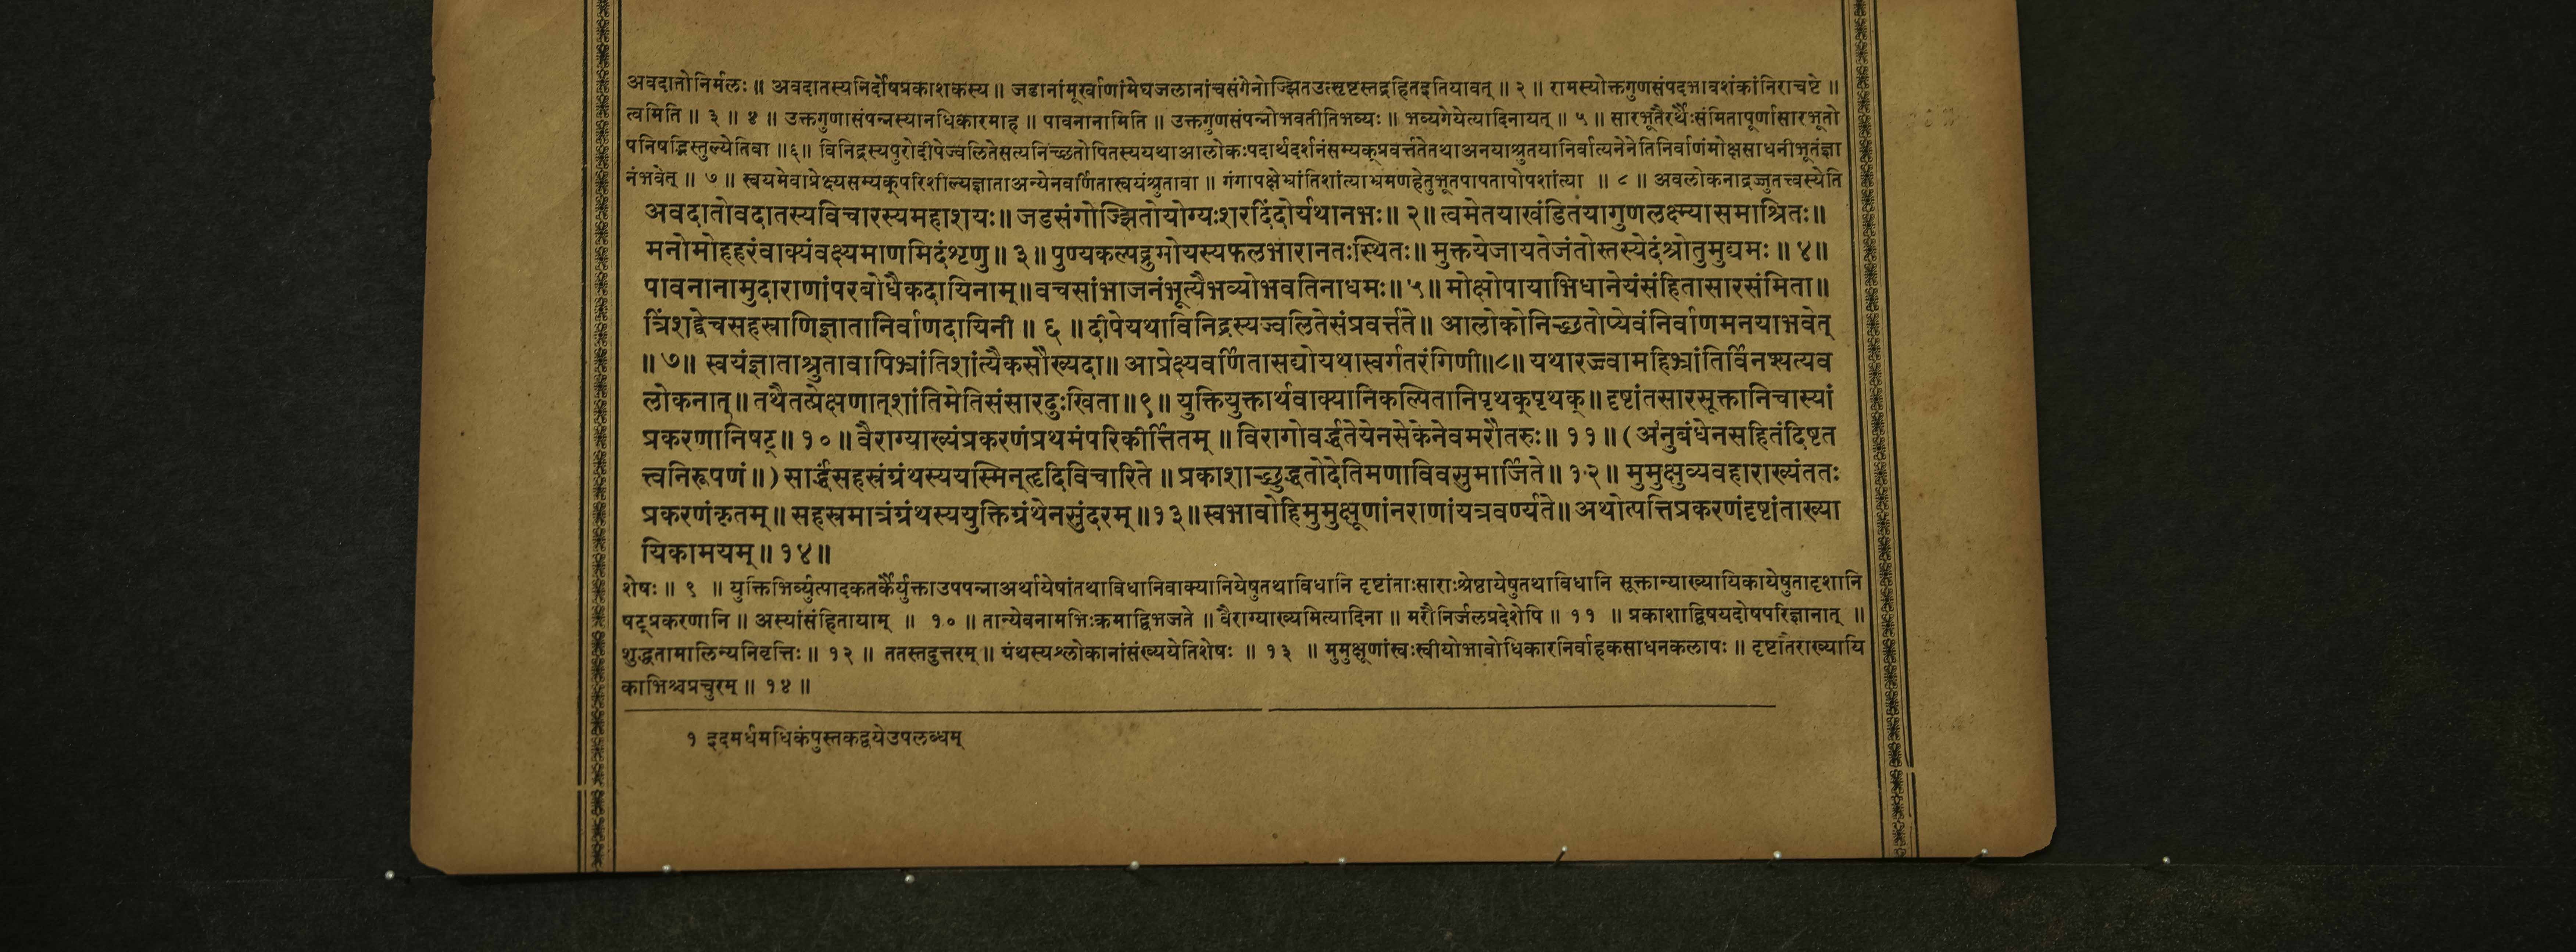 अवदातोनिर्मलः ॥ अवदातस्यनिर्दोषप्रकाशकस्य ॥ जडानांमूर्खाणांमेघजलानांचसंगेनोज्झितउत्सृष्टस्तद्रहितइतियावत् ॥ २ ॥ रामस्योक्तगुणसंपदभावशंकांनिराचष्टे ॥
त्वमिति ॥ ३ ॥ ४ ॥ उक्तगुणासंपन्नस्यानधिकारमाह ॥ पावनानामिति ॥ उक्तगुणसंपन्नोभवतीतिभव्यः ॥ भव्यगेयेत्यादिनायत् ॥ ५ ॥ सारभूतैरर्थैःसंमितापूर्णासारभूतो
पनिषद्भिस्तुल्येतिवा ॥६॥ विनिद्रस्यपुरोदीपेज्वलितेसत्यनिच्छतोपितस्ययथाआलोकःपदार्थदर्शनंसम्यक्प्रवर्त्ततेतथाअनयाश्रुतयानिर्वात्यनेनेतिनिर्वाणंमोक्षसाधनीभूतंज्ञा
नंभवेत् ॥ ७ ॥ स्वयमेवाप्रेक्ष्यसम्यक्परिशील्यज्ञाताअन्येनवर्णितास्वयंश्रुतावा ॥ गंगापक्षेभ्रांतिशांत्याभ्रमणहेतुभूतपापतापोपशांत्या ॥ ८ ॥ अवलोकनाद्रज्जुतत्त्वस्येति
अवदातोवदातस्यविचारस्यमहाशयः॥ जडसंगोज्झितोयोग्यःशरदिंदोर्यथानभः॥ २॥ त्वमेतयाखंडितयागुणलक्ष्म्यासमाश्रितः॥
मनोमोहहरंवाक्यंवक्ष्यमाणमिदंशृणु॥ ३॥ पुण्यकल्पद्रुमोयस्यफलभारानतःस्थितः॥ मुक्तयेजायतेजंतोस्तस्येदंश्रोतुमुद्यमः॥ ४॥
पावनानामुदाराणांपरबोधैकदायिनाम्॥वचसांभाजनंभूत्यैभव्योभवतिनाधमः॥५॥ मोक्षोपायाभिधानेयंसंहितासारसंमिता॥
त्रिंशद्वेचसहस्राणिज्ञातानिर्वाणदायिनी॥ ६ ॥ दीपेयथाविनिद्रस्यज्वलितेसंप्रवर्त्तते॥ आलोकोनिच्छतोप्येवंनिर्वाणमनयाभवेत्
॥७॥ स्वयंज्ञाताश्रुतावापिभ्रांतिशांत्यैकसौख्यदा॥ आप्रेक्ष्यवर्णितासद्योयथास्वर्गतरंगिणी॥८॥ यथारज्ज्वामहिभ्रांतिर्विनश्यत्यव
लोकनात्॥ तथैतत्प्रेक्षणात्शांतिमेतिसंसारदुःखिता॥९॥ युक्तियुक्तार्थवाक्यानिकल्पितानिपृथक्पृथक्॥ दृष्टांतसारसूक्तानिचास्यां
प्रकरणानिषट्॥ १०॥ वैराग्याख्यंप्रकरणंप्रथमंपरिकीर्त्तितम्॥ विरागोवर्द्धतेयेनसेकेनेवमरौतरुः॥ ११॥ (अंनुबंधेनसहितंदिष्टत
त्त्वनिरूपणं॥) सार्द्धंसहस्रंग्रंथस्ययस्मिन्हृदिविचारिते॥ प्रकाशाच्छुद्धतोदेतिमणाविवसुमार्जिते॥ १२॥ मुमुक्षुव्यवहाराख्यंततः
प्रकरणंकृतम्॥ सहस्रमात्रंग्रंथस्ययुक्तिग्रंथेनसुंदरम्॥१३॥स्वभावोहिमुमुक्षूणांनराणांयत्रवर्ण्यते॥ अथोत्पत्तिप्रकरणंदृष्टांताख्या
यिकामयम्॥ १४॥
शेषः ॥ ९ ॥ युक्तिभिर्व्युत्पादकतर्कैर्युक्ताउपपन्नाअर्थायेषांतथाविधानिवाक्यानियेषुतथाविधानि दृष्टांताःसाराःश्रेष्ठायेषुतथाविधानि सूक्तान्याख्यायिकायेषुतादृशानि
षट्प्रकरणानि ॥ अस्यांसंहितायाम् ॥ १० ॥ तान्येवनामभिःक्रमाद्विभजते ॥ वैराग्याख्यमित्यादिना ॥ मरौनिर्जलप्रदेशेपि ॥ ११ ॥ प्रकाशाद्विषयदोषपरिज्ञानात् ॥
शुद्धतामालिन्यनिवृत्तिः ॥ १२ ॥ ततस्तदुत्तरम् ॥ ग्रंथस्यश्लोकानांसंख्ययेतिशेषः ॥ १३ ॥ मुमुक्षूणांस्वःस्वीयोभावोधिकारनिर्वाहकसाधनकलापः ॥ दृष्टांतैराख्यायि
काभिश्चप्रचुरम् ॥ १४ ॥
१ इदमर्धमधिकंपुस्तकद्वयेउपलब्धम्